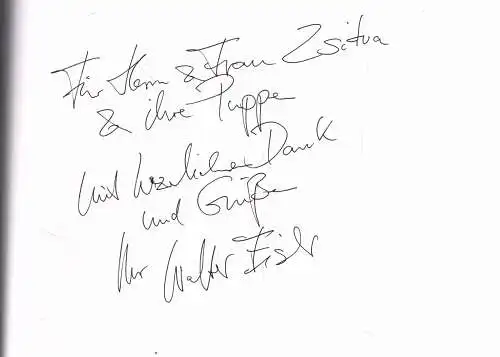 Für Herrn & Frau Zsitva
& ihre Puppe
mit herzlichem Dank
und Grüße
Ihr Walter